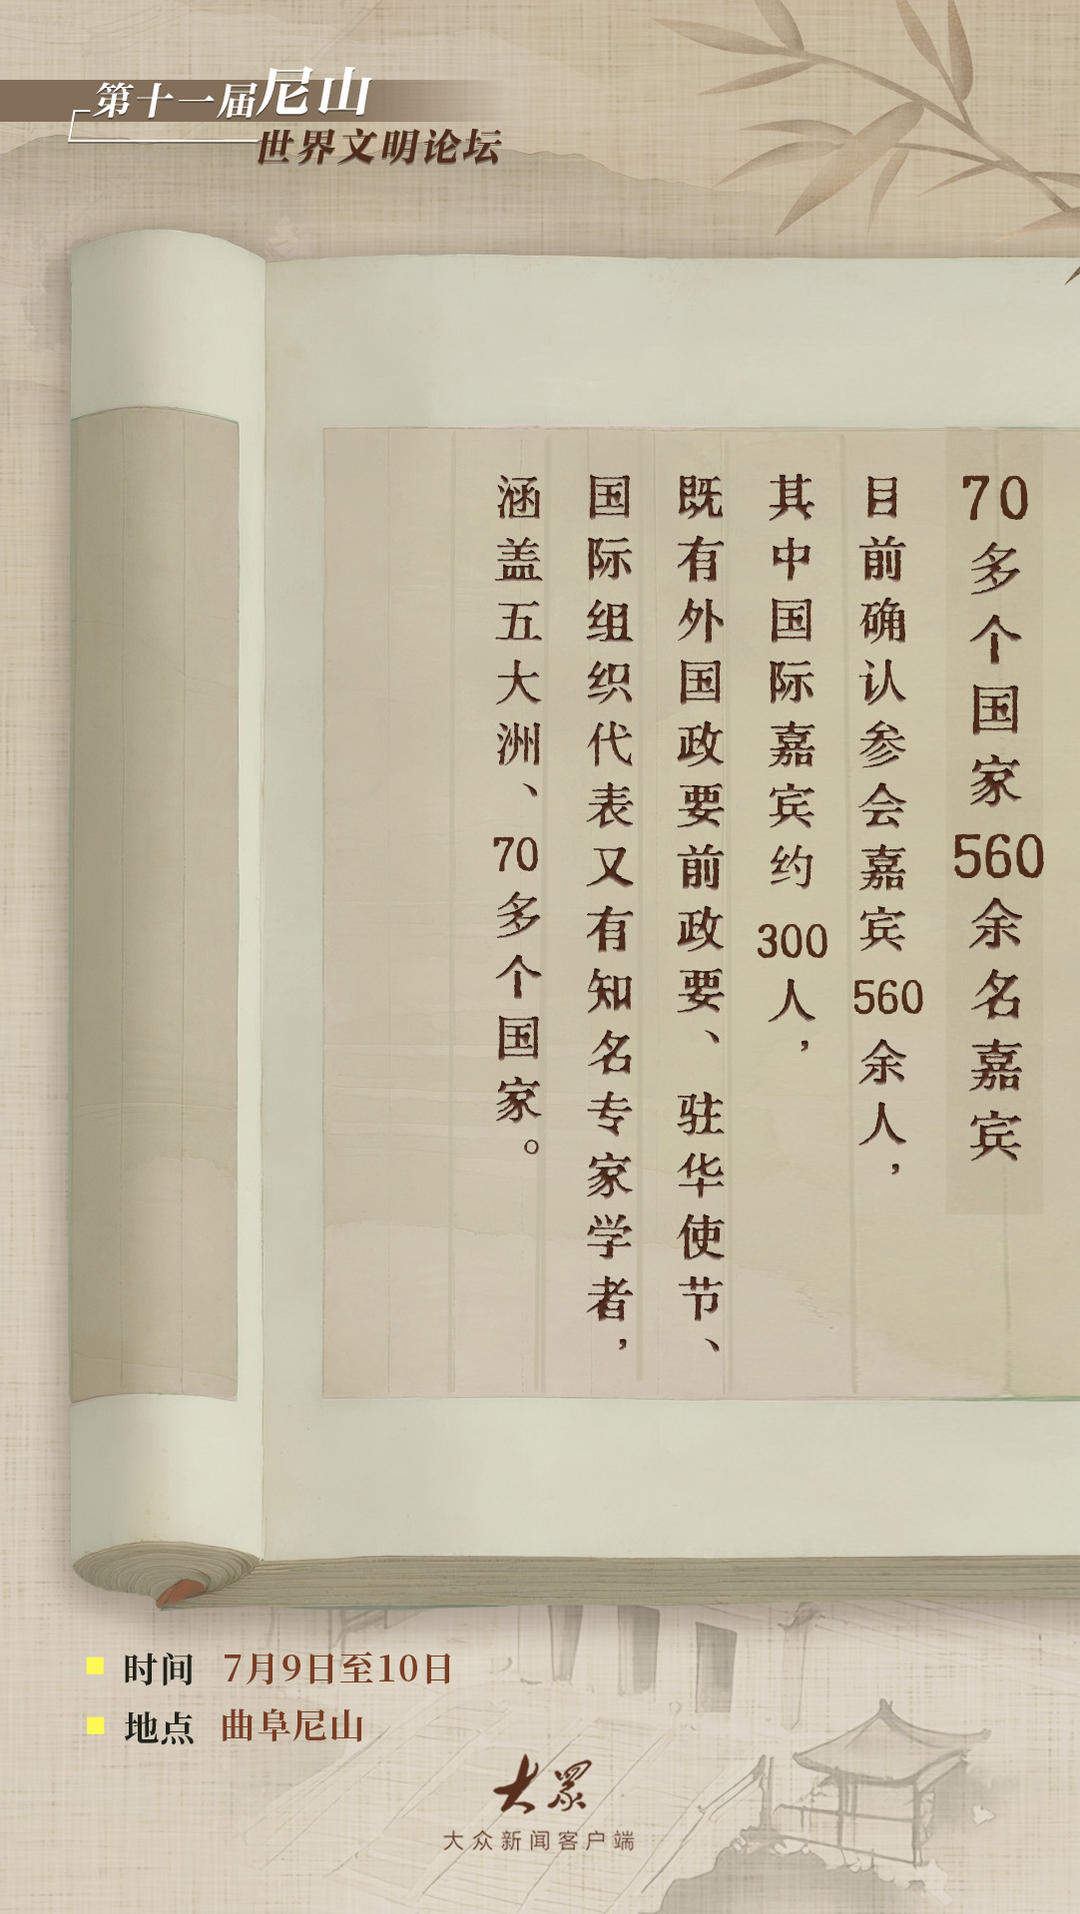 第十一届尼山
世界文明论坛
70多个国家560余名嘉宾
目前确认参会嘉宾560余人，
其中国际嘉宾约300人，
既有外国政要前政要、驻华使节、
国际组织代表又有知名专家学者，
涵盖五大洲、70多个国家。
时间 7月9日至10日
地点 曲阜尼山
大眾
大众新闻客户端